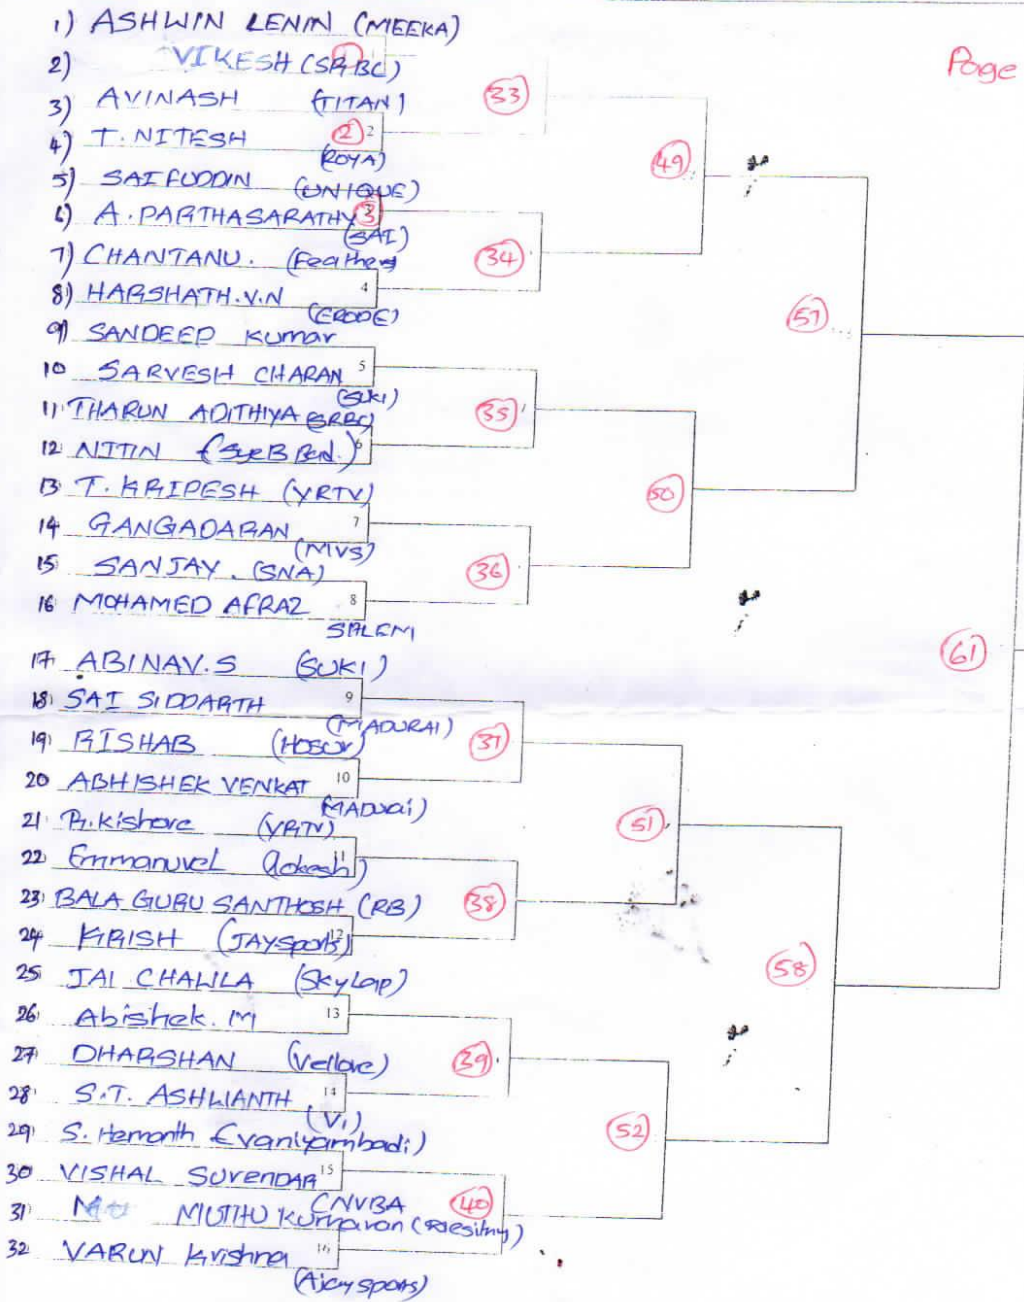 1) ASHWIN LENIN (MEEKA)
2) VIKESH (SRBC) 1
Page
3) AVINASH (TITAN) 33
4) T. NITESH 2 2
(ROYA) 49
5) SAIFUDDIN (UNIQUE)
6) A. PARTHASARATHY 3
(SAI)
7) CHANTANU. (Feathers 34
8) HARSHATH.V.N 4
(ERODE) 57
9) SANDEEP Kumar
10 SARVESH CHARAN 5
(SUKI)
11) THARUN ADITHIYA (SRBC) 35
12) NITIN 6
13) T. KRIPESH (YRTV) 50
14) GANGADARAN 7
(MVS)
15 SANJAY. (SNA) 36
16 MOHAMED AFRAZ 8
SALEM
17) ABINAV.S (SUKI) 61
18) SAI SIDDARTH 9
(MADURAI)
19) RISHAB (HOSUR) 37
20 ABHISHEK VENKAT 10
(MADURai)
21) R.Kishore (YRTV) 51
22) Emmanuvel 11
23) BALA GURU SANTHOSH (RB) 38
24) KRISH (JAYsports) 12
25) JAI CHAWLA (Skylap) 58
26) Abishek. M 13
27) DHARSHAN (Vellore) 39
28) S.T. ASHWANTH 14
(Vi)
29) S. Hemanth (vaniyambadi) 52
30 VISHAL SURENDAR 15
CNVBA 40
31) MUTHU Kumaran
32 VARUN Krishna 16
(Ajay sports)